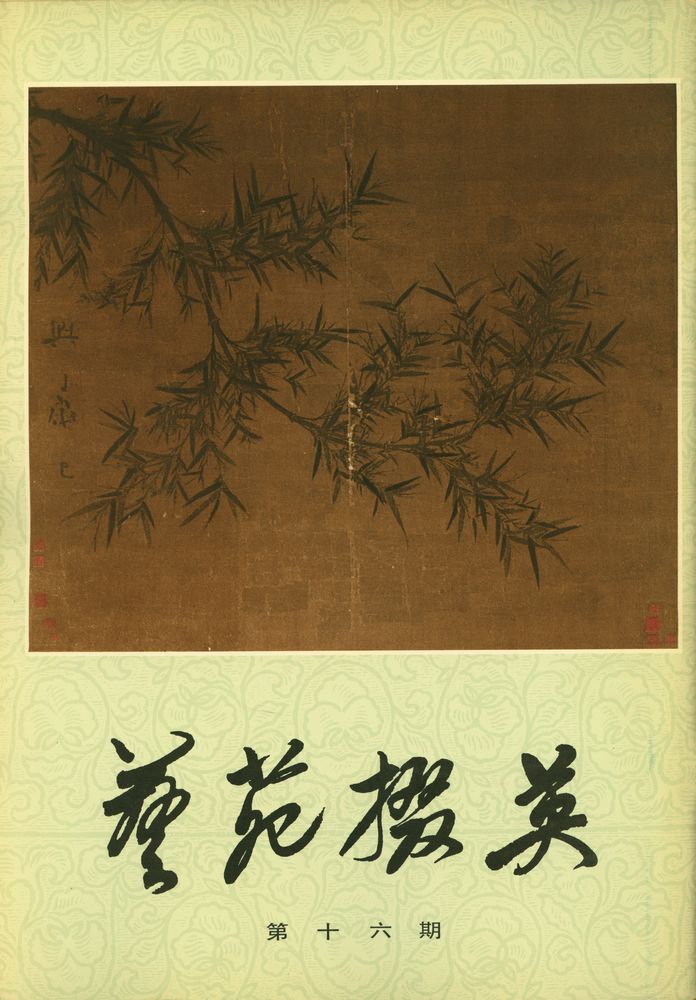 藝苑掇英
第十六期